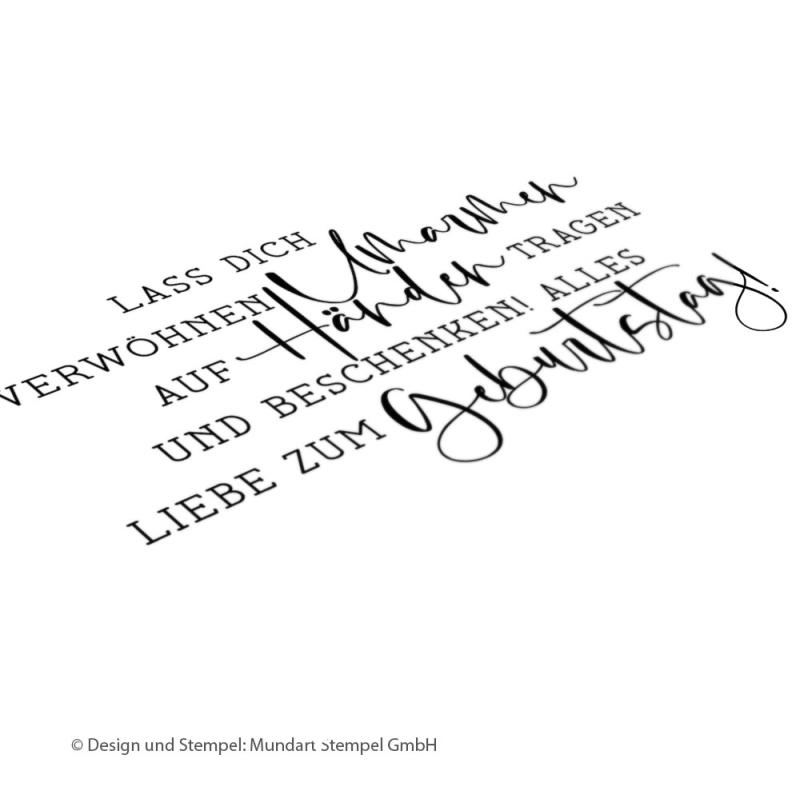 LASS DICH
VERWÖHNEN Umarmen
AUF Händen TRAGEN
UND BESCHENKEN! ALLES
LIEBE ZUM Geburtstag!
© Design und Stempel: Mundart Stempel GmbH